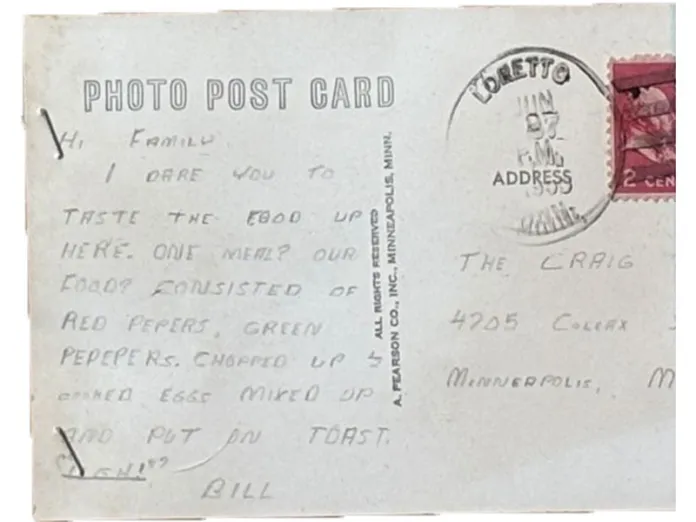 PHOTO POST CARD
HI FAMILY
I DARE YOU TO
TASTE THE FOOD UP
HERE. ONE MEAL? OUR
FOOD? CONSISTED OF
RED PEPERS, GREEN
PEPEPERS. CHOPPED UP &
COOKED EGGS MIXED UP
AND PUT ON TOAST.
BILL
ALL RIGHTS RESERVED
A. PEARSON CO., INC., MINNEAPOLIS, MINN.
LORETTO
JUN
27
P.M.
ADDRESS
MINN.
2 CEN
THE CRAIG
4205 COLFAX
MINNEAPOLIS, M